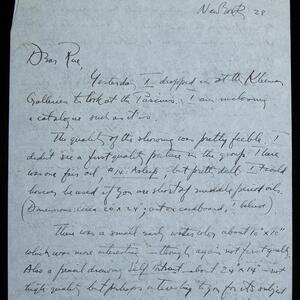 New York 28
Dear Rue,
Yesterday I dropped in at the Kleeman
Galleries to look at the Pascins. I am enclosing
a catalogue such as it is.
The quality of the showing was pretty feeble. I
didn't see a first quality picture in the group. There
was one fair oil, #14. Asleep, but pretty dull. I would
however be used if you are short of middle period oils.
(Dimensions circa 20 x 24", out on cardboard, I believe)
There was a small early water color about 10" x 10"
which was more interesting – though again not first quality.
Also a pencil drawing Self Portrait – about 24 x 14" – not
high quality but perhaps interesting to you for its subject